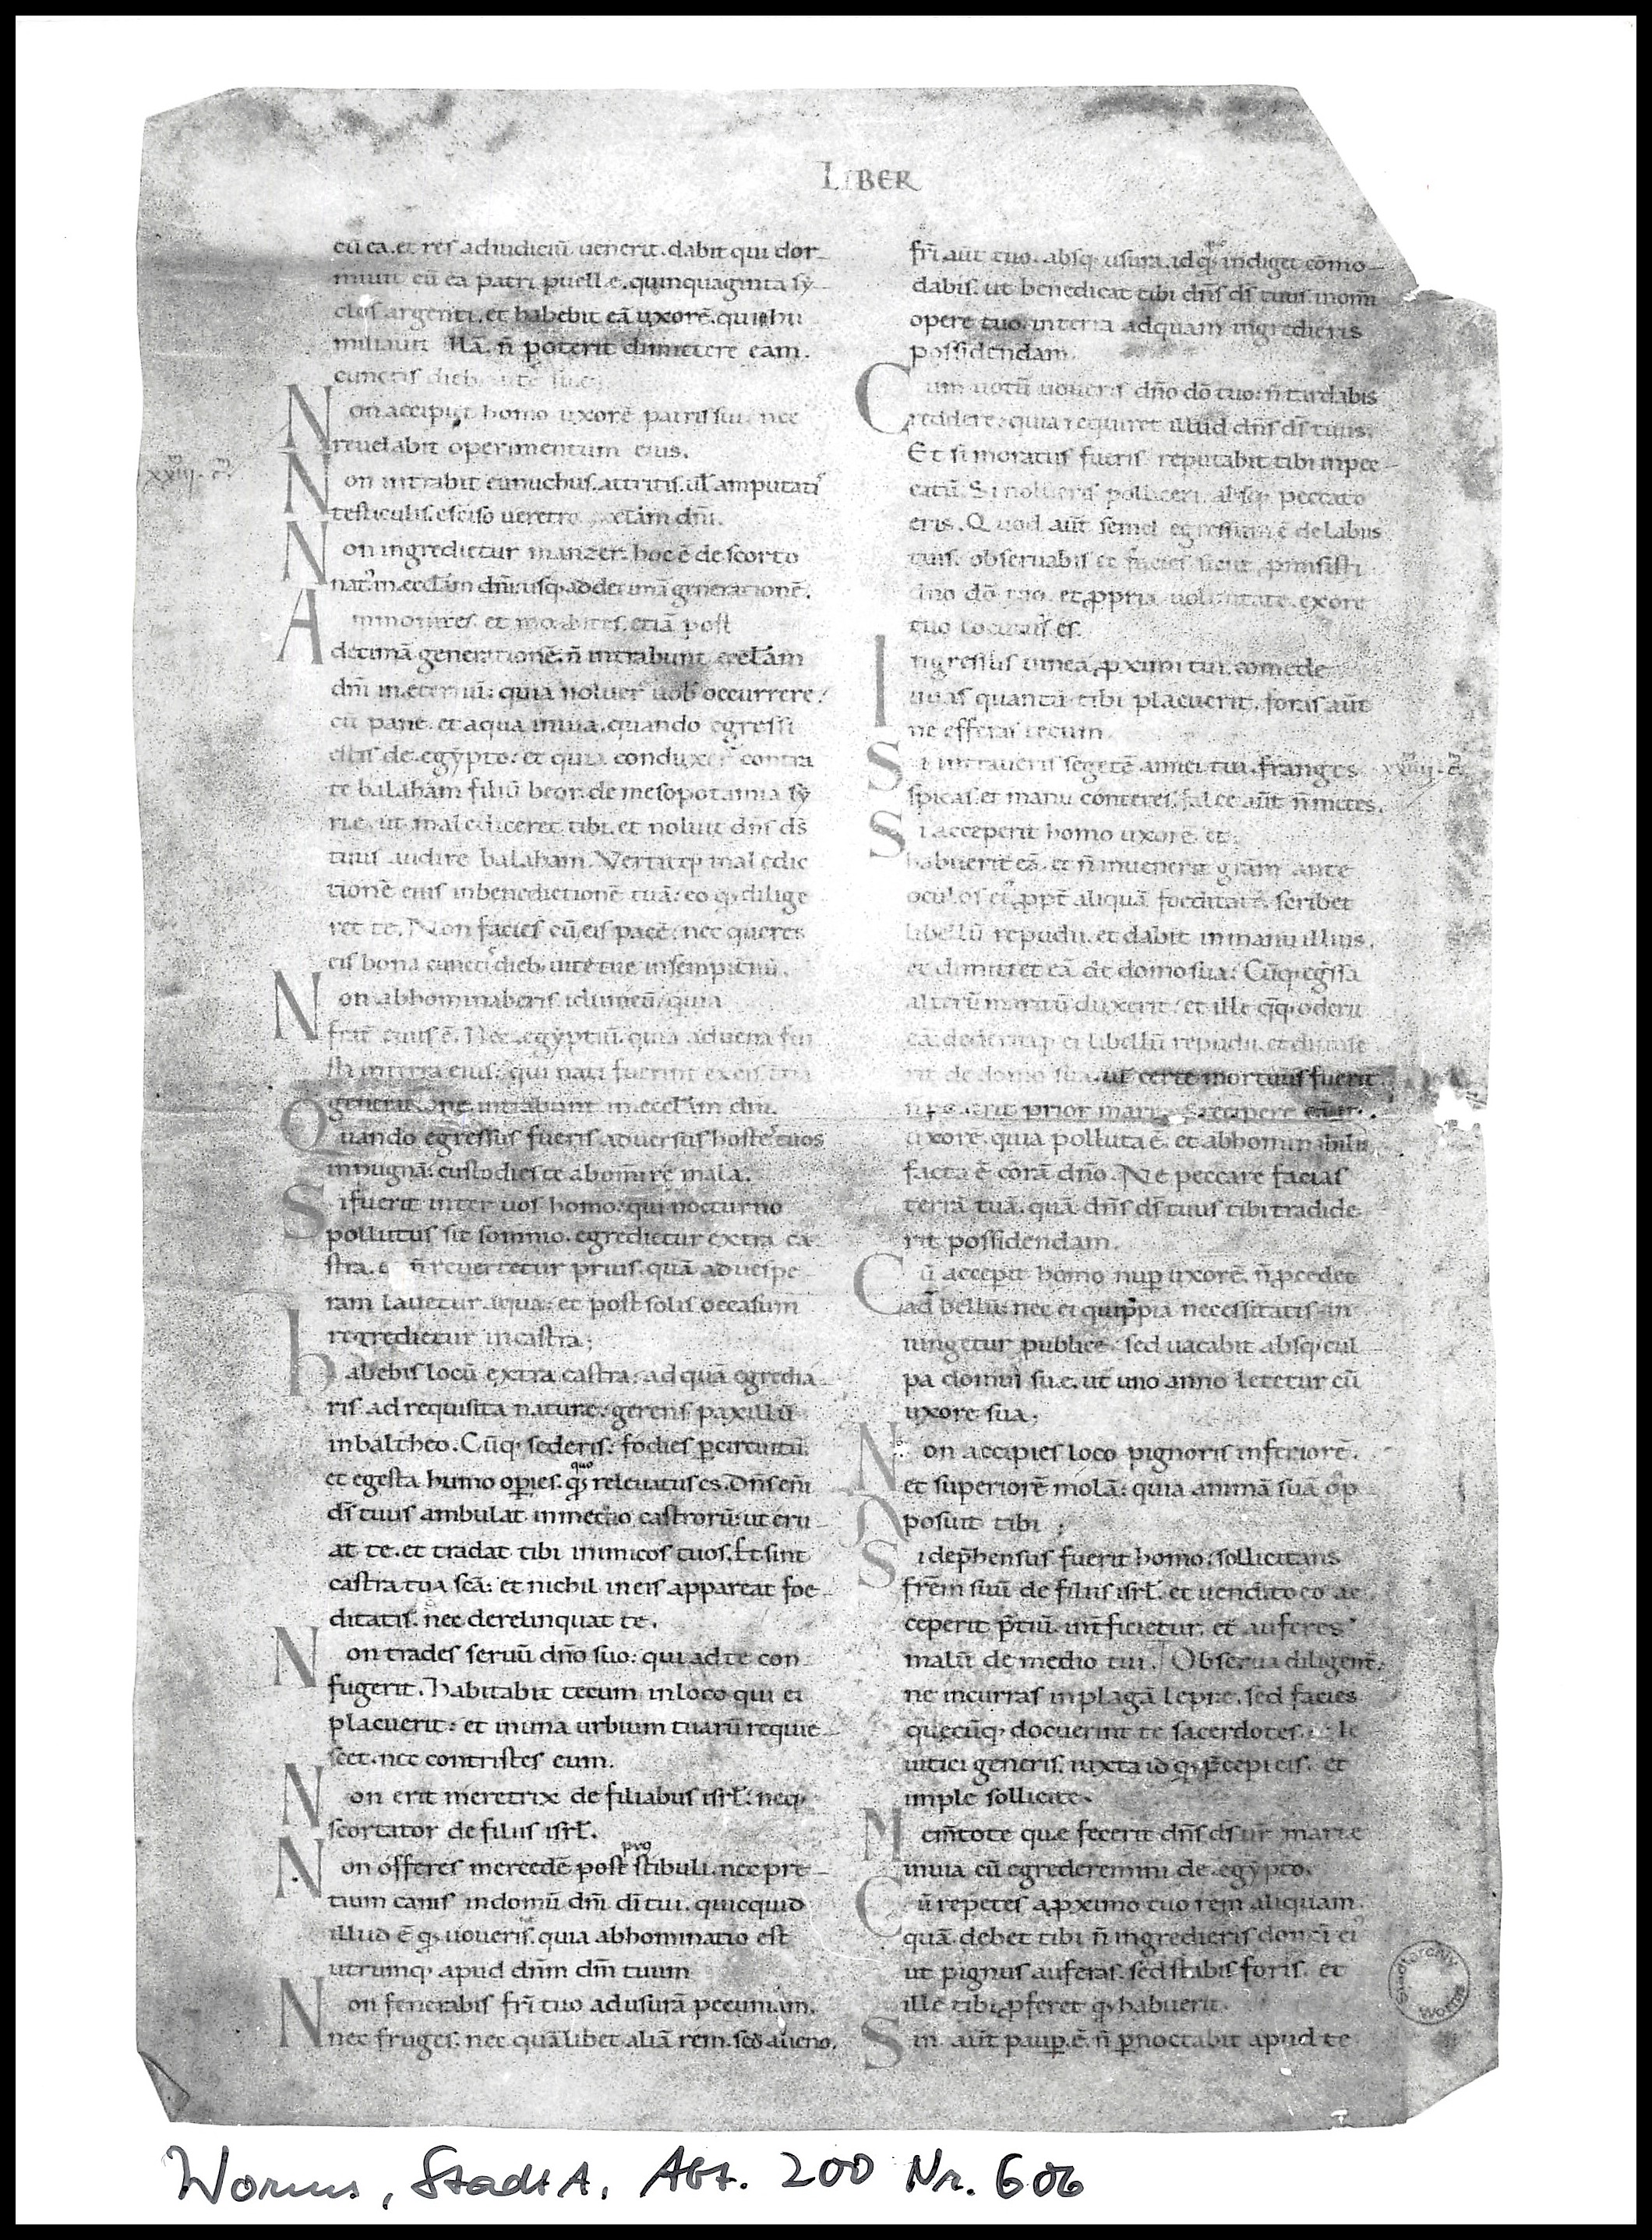 LIBER
cū ea. et res ad iudiciū uenerit. dabit qui dor-
miuit cū ea patri puelle. quinquaginta sy-
clos argenti. et habebit eā uxorē. quia hu
miliauit illā. n̄ poterit dimittere eam.
cunctis dieb; uite sue.
Non accipiet homo uxorē patris sui. nec
reuelabit operimentum eius.
xxiii.
Non intrabit eunuchus. attritis. ul̄ amputatis
testiculis. et sciso ueretro. eccłam dn̄i.
Non ingredietur manzer. hoc ē de scorto
natus in eccłam dn̄i. usq; ad decimā generationē.
Ammonites. et moabites. etiā post
decimā generationē. n̄ intrabunt eccłam
dn̄i in eternū: quia noluer̄ uob̄ occurrere.
cū pane. et aqua in uia. quando egressi
estis de egypto: et quia conduxer̄ contra
te balaham filiū beor. de mesopotamia sy
rie. ut malediceret tibi. et noluit dn̄s ds̄
tuus audire balaham. Vertitq; maledic
tionē eius in benedictionē tuā: eo q; dilige
ret te. Non facies cū eis pacē: nec queres
eis bona cunctis dieb; uite tue in sempiternū.
Non abhominaberis idumeū: quia
frat̄ tuus ē. Nec egyptiū. quia aduena fui
sti in terra eius: qui nati fuerint ex eis. tercia
generatione. intrabunt in eccłam dn̄i.
Quando egressus fueris aduersus hostes tuos
in pugnā: custodies te ab om̄i re mala.
Si fuerit inter uos homo. qui nocturno
pollutus sit somnio. egredietur extra ca-
stra. et n̄ reuertetur prius. quā ad uespe-
ram lauetur aqua: et post solis occasum
regredietur in castra;
habebis locū extra castra: ad quā egredia-
ris ad requisita nature. gerens paxillū
in baltheo. Cūq; sederis: fodies p̱ circuitū.
et egesta humo op̱ies. quo releuatus es. Dn̄s en̄i
ds̄ tuus ambulat in medio castrorū: ut eru-
at te. et tradat tibi inimicos tuos. Et sint
castra tua scā: et nichil in eis appareat foe-
ditatis. nec derelinquat te.
Non trades seruū dn̄o suo: qui ad te con-
fugerit. Habitabit tecum in loco qui ei
placuerit: et in una urbium tuarū requie-
scet. nec contristes eum.
Non erit meretrix de filiabus isrł: neq;
scortator de filiis isrł.
Non offeres mercedē post pro stibuli. nec pre-
tium canis in domū dn̄i dī tui. quicquid
illud ē q; uoueris. quia abhominatio est
utrumq; apud dn̄m dm̄ tuum
Non fenerabis fr̄i tuo ad usurā pecuniam.
nec fruges. nec quālibet aliā rem. sed alieno.
fr̄i aūt tuo. absq; usura. id q; indiget cōmo-
dabis. ut benedicat tibi dn̄s ds̄ tuus in om̄i
opere tuo. in terra ad quam ingredieris
possidendam.
Cum uotū uoueris dn̄o dō tuo: n̄ tardabis
reddere: quia requiret illud dn̄s ds̄ tuus.
Et si moratus fueris reputabit tibi in pec-
catū. Si nolueris polliceri. absq; peccato
eris. Quod aūt semel egressum ē de labiis
tuis. obseruabis et facies sicut p̱misisti
dn̄o dō tuo. et p̱pria uoluntate. ex ore
tuo locutus es.
Ingressus uineā p̱ximi tui. comede
uuas quantū tibi placuerit. foras aūt
ne efferas tecum.
Si intraueris segetē amici tui. franges
xxiiii.
spicas. et manu conteres. falce aūt n̄ metes.
Si acceperit homo uxorē et
habuerit eā. et n̄ inuenerit grām ante
oculos ei' p̱pt̄ aliquā foeditatē. scribet
libellū repudii. et dabit in manu illius.
et dimittet eā de domo sua. Cūq; eg̃ssa
alterū maritū duxerit: et ille q̄q; oderit
eā. dederitq; ei libellū repudii. et dimise
rit de domo sua. uł certe mortuus fuerit.
prior maritus recipere eam.
uxorē. quia polluta ē. et abhominabilis
facta ē corā dn̄o. Ne peccare facias
terrā tuā. quā dn̄s ds̄ tuus tibi tradide
rit possidendam.
Cū accepit homo nup̱ uxorē. n̄ p̱cedet
ad bellū: nec ei quippiā necessitatis in
iungetur publice. sed uacabit absq; cul
pa domui sue. ut uno anno letetur cū
uxore sua.
Non accipies loco pignoris inferiorē.
et superiorē molā: quia animā suā op
posuit tibi;
Si dep̄hensus fuerit homo. sollicitans
fr̄em suū de filiis isrł. et uendito eo ac
ceperit p̄tiū. int̄ficietur. et auferes
malū de medio tui. Obserua diligent̄.
ne incurras in plagā lepre. sed facies
quecūq; docuerint te sacerdotes. le
uitici generis. iuxta id q; p̄cepi eis. et
imple sollicite.
Mem̄tote que fecerit dn̄s ds̄ ur̄ marie
in uia cū egrederemini de egypto.
Cū repetes a p̱ximo tuo rem aliquam.
quā debet tibi n̄ ingredieris domū ei'
ut pignus auferas. sed stabis foris. et
ille tibi p̱feret q; habuerit.
Sin aūt paup̱ ē. n̄ p̱noctabit apud te
Stadtarchiv Worms
Worms, StadtA, Abt. 200 Nr. 606